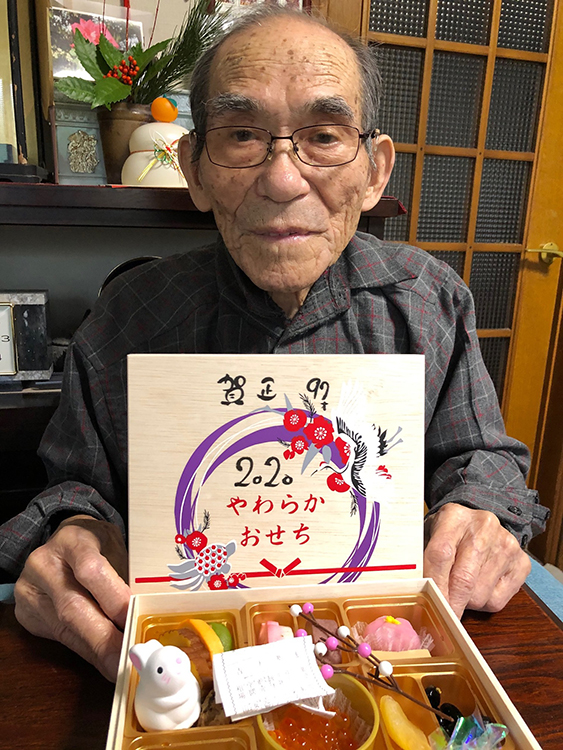 賀正 97才
2020
やわらか
おせち